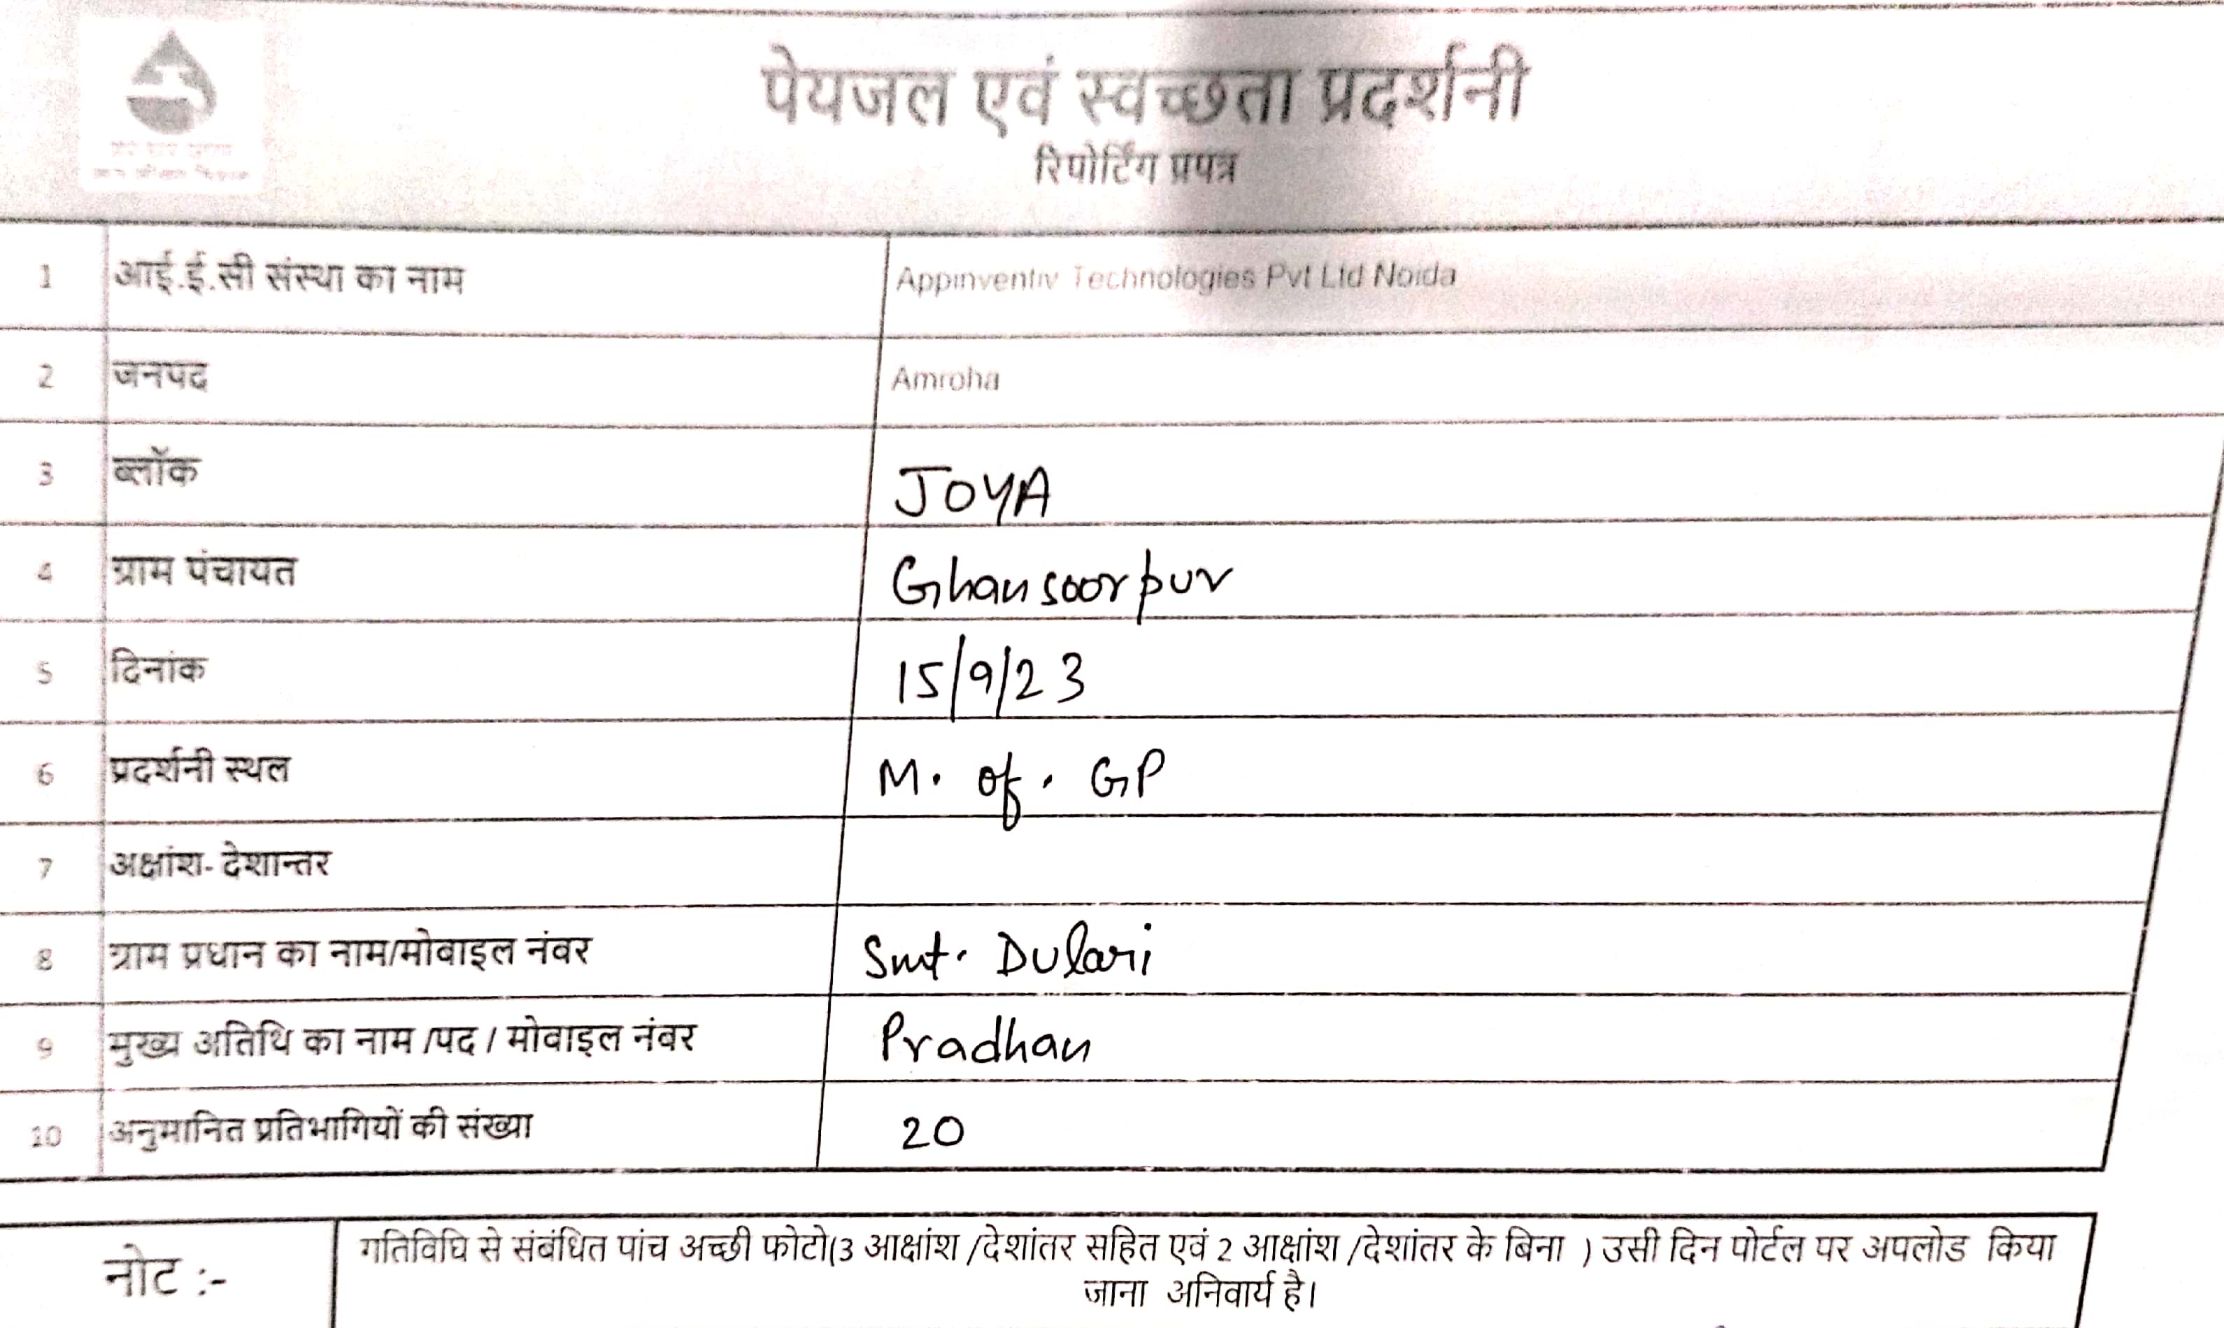 पेयजल एवं स्वच्छता प्रदर्शनी
रिपोर्टिंग प्रपत्र
1 आई.ई.सी संस्था का नाम Appinventiv Technologies Pvt Ltd Noida
2 जनपद Amroha
3 ब्लॉक JOYA
4 ग्राम पंचायत Ghansoorpur
5 दिनांक 15/9/23
6 प्रदर्शनी स्थल M. of. GP
7 अक्षांश- देशान्तर
8 ग्राम प्रधान का नाम/मोबाइल नंबर Smt. Dulari
9 मुख्य अतिथि का नाम /पद / मोबाइल नंबर Pradhan
10 अनुमानित प्रतिभागियों की संख्या 20
नोट :- गतिविधि से संबंधित पांच अच्छी फोटो(3 आक्षांश /देशांतर सहित एवं 2 आक्षांश /देशांतर के बिना ) उसी दिन पोर्टल पर अपलोड किया
जाना अनिवार्य है।